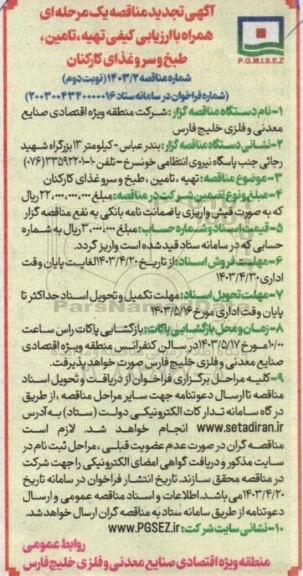 آگهی تجدید مناقصه یک مرحله ای
همراه با ارزیابی کیفی تهیه، تامین،
طبخ و سرو غذای کارکنان
P.G.M.I.S.E.Z
شماره مناقصه ۱۴۰۳/۲ (نوبت دوم)
(شماره فراخوان در سامانه ستاد ۲۰۰۳۰۰۴۳۴۰۰۰۰۰۱۶)
۱-نام دستگاه مناقصه گزار: شرکت منطقه ویژه اقتصادی صنایع
معدنی و فلزی خلیج فارس
۲-نشانی دستگاه مناقصه گزار: بندرعباس- کیلومتر ۱۳ بزرگراه شهید
رجائی جنب پاسگاه نیروی انتظامی خونسرخ - تلفن ۱۰-۳۳۵۹۲۲۰۱ (۰۷۶)
۳-موضوع مناقصه: تهیه، تامین، طبخ و سرو غذای کارکنان
۴-مبلغ ونوع تضمین شرکت در مناقصه: مبلغ ۲۲,۰۰۰,۰۰۰,۰۰۰ ریال
که به صورت فیش واریزی یا ضمانت نامه بانکی به نفع مناقصه گزار
۵-قیمت اسناد و شماره حساب: مبلغ ۳,۰۰۰,۰۰۰ ریال به شماره
حسابی که در سامانه ستاد قید شده است واریز گردد.
۶-مهلت فروش اسناد: از تاریخ ۱۴۰۳/۴/۲۰ لغایت پایان وقت
اداری ۱۴۰۳/۴/۳۰
۷-مهلت تحویل اسناد: مهلت تکمیل و تحویل اسناد حداکثر تا
پایان وقت اداری مورخ ۱۴۰۳/۵/۱۶
۸-زمان و محل بازگشایی پاکات: بازگشایی پاکات راس ساعت
۱۰/۰۰ مورخ ۱۴۰۳/۵/۱۷ در سالن کنفرانس منطقه ویژه اقتصادی
صنایع معدنی و فلزی خلیج فارس صورت خواهد پذیرفت.
۹-کلیه مراحل برگزاری فراخوان از دریافت و تحویل اسناد
مناقصه تا ارسال دعوتنامه جهت سایر مراحل مناقصه، از طریق
درگاه سامانه تدارکات الکترونیکی دولت (ستاد) به آدرس
www.setadiran.ir انجام خواهد شد. لازم است
مناقصه گران در صورت عدم عضویت قبلی، مراحل ثبت نام در
سایت مذکور و دریافت گواهی امضای الکترونیکی را جهت شرکت
در مناقصه محقق سازند. تاریخ انتشار فراخوان در سامانه تاریخ
۱۴۰۳/۴/۲۰ می باشد. اطلاعات و اسناد مناقصه عمومی و ارسال
دعوتنامه از طریق سامانه ستاد به مناقصه گران ارسال خواهد شد.
۱۰-نشانی سایت شرکت: www.PGSEZ.ir
روابط عمومی
منطقه ویژه اقتصادی صنایع معدنی و فلزی خلیج فارس